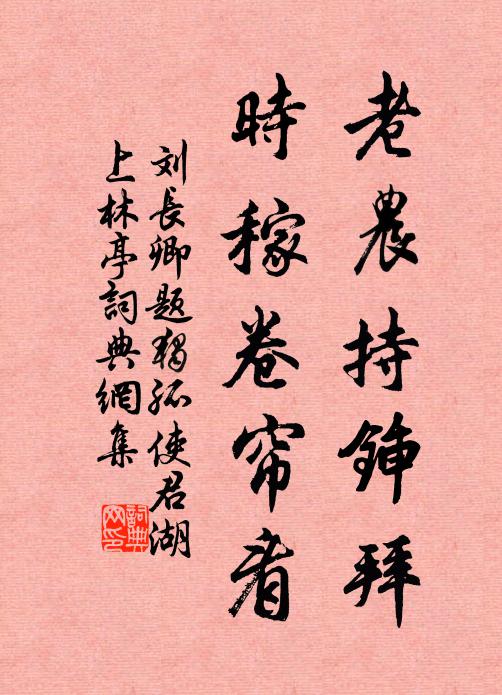 老農持鍤拜
時稼卷帘看
刘長卿题獨孤使君湖
上林亭詞典網集
詞典
网印